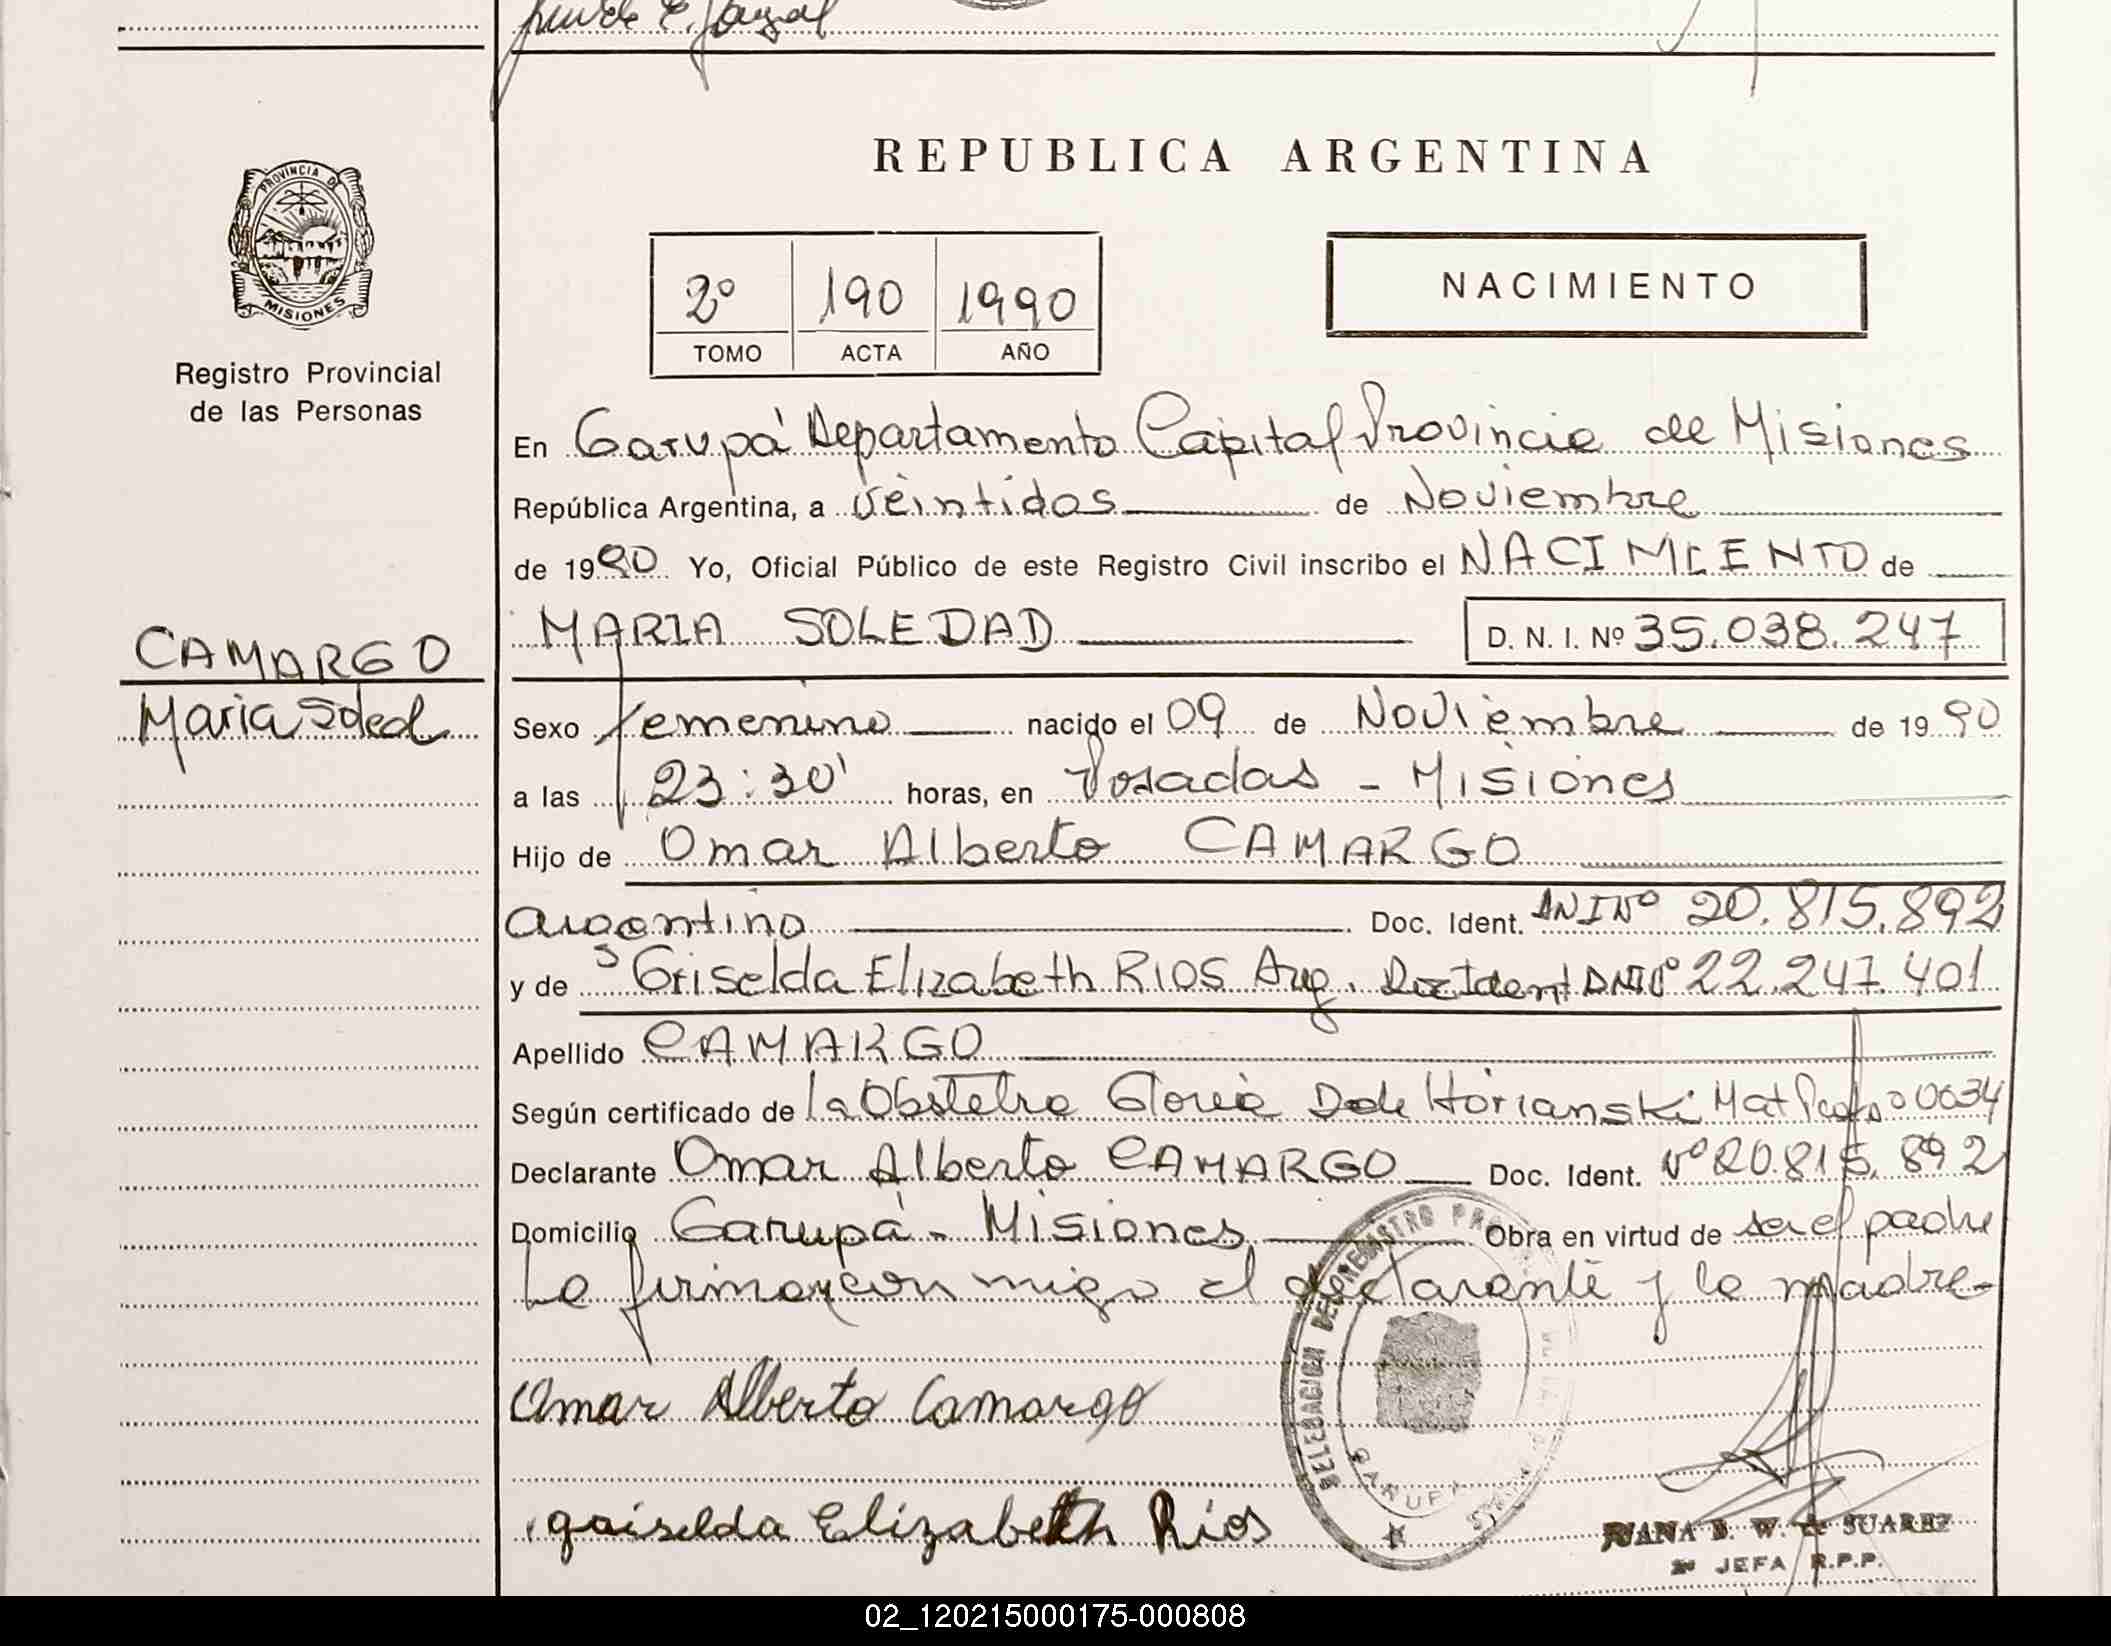 REPUBLICA ARGENTINA
PROVINCIA DE
MISIONES
Registro Provincial
de las Personas
2º 190 1990
TOMO ACTA AÑO
NACIMIENTO
En Garupá Departamento Capital Provincia de Misiones
República Argentina, a veintidos de Noviembre
de 1990 Yo, Oficial Público de este Registro Civil inscribo el NACIMIENTO de
MARIA SOLEDAD D. N. I. Nº 35.038.247
CAMARGO
Maria Soled
Sexo femenino nacido el 09 de Noviembre de 1990
a las 23:30' horas, en Posadas - Misiones
Hijo de Omar Alberto CAMARGO
argentino Doc. Ident. DNI Nº 20.815.892
y de Griselda Elizabeth RIOS Arg. Doc Ident DNI Nº 22.247.401
Apellido CAMARGO
Según certificado de la Obstetra Gloria D de Horianski Mat 0034
Declarante Omar Alberto CAMARGO Doc. Ident. Nº 20.815.892
Domicilio Garupá - Misiones Obra en virtud de ser el padre
La firman con migo el declarante y la madre-
Omar Alberto Camargo
griselda Elizabeth Rios
DELEGACION DEL REGISTRO
GARUPA
JUANA B. W. de SUAREZ
2ª JEFA R.P.P.
02_120215000175-000808